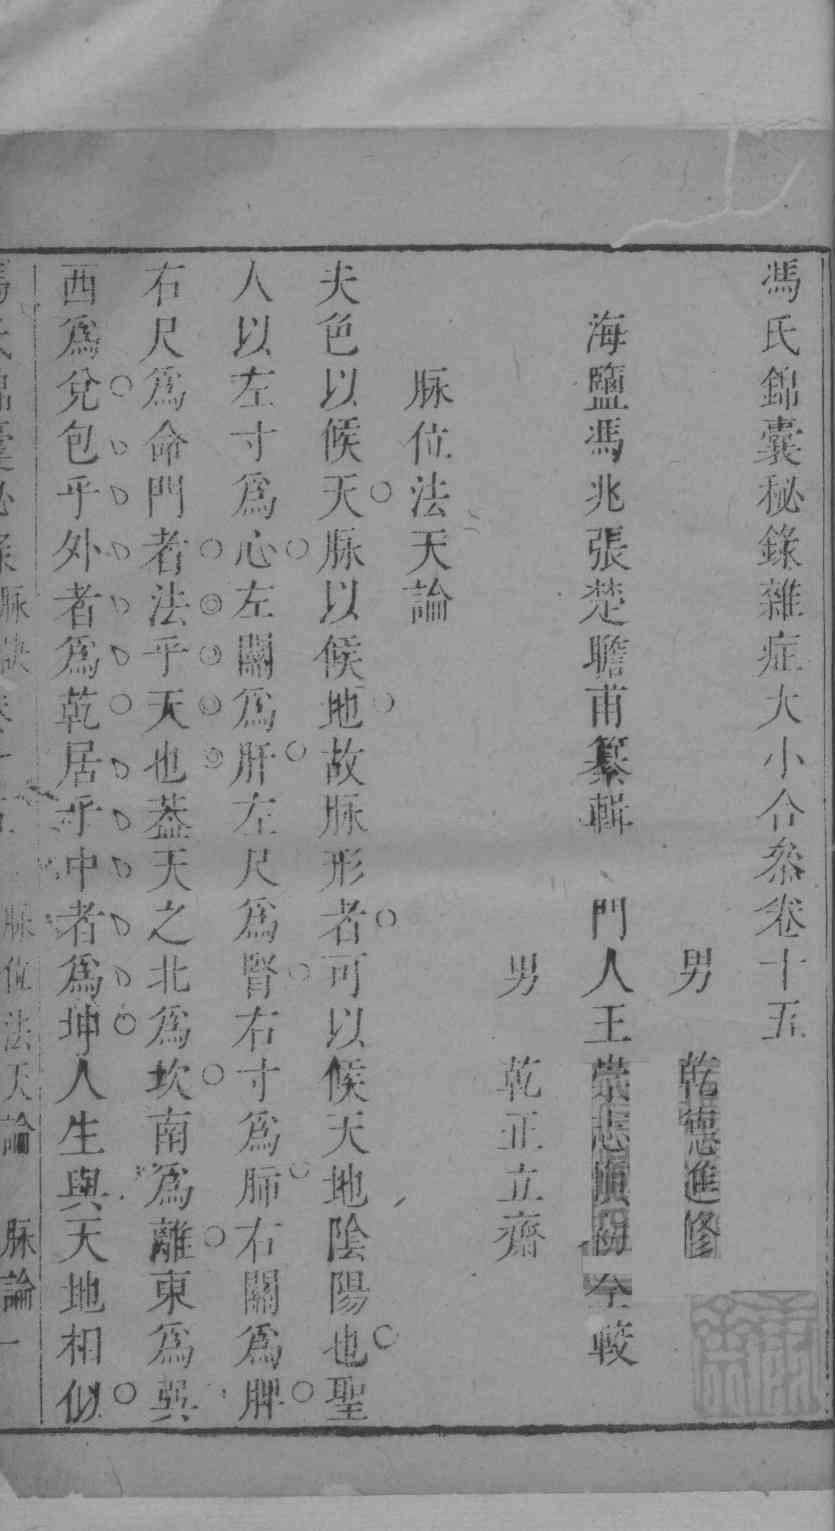 馮氏錦囊秘錄雜症大小合叅卷十五
男　乾德進修
海鹽馮兆張楚瞻甫纂輯　門人王崇志慎初仝較
男　乾正立齋
脉位法天論
夫色以候天脉以候地故脉形者可以候天地陰陽也聖
人以左寸爲心左關爲肝左尺爲腎右寸爲肺右關爲脾
右尺爲命門者法乎天也葢天之北爲坎南爲離東爲巽
西爲兌包乎外者爲乾居乎中者爲坤人生與天地相似
馮氏錦囊秘錄　脉訣卷十五　脉位法天論　脉論一